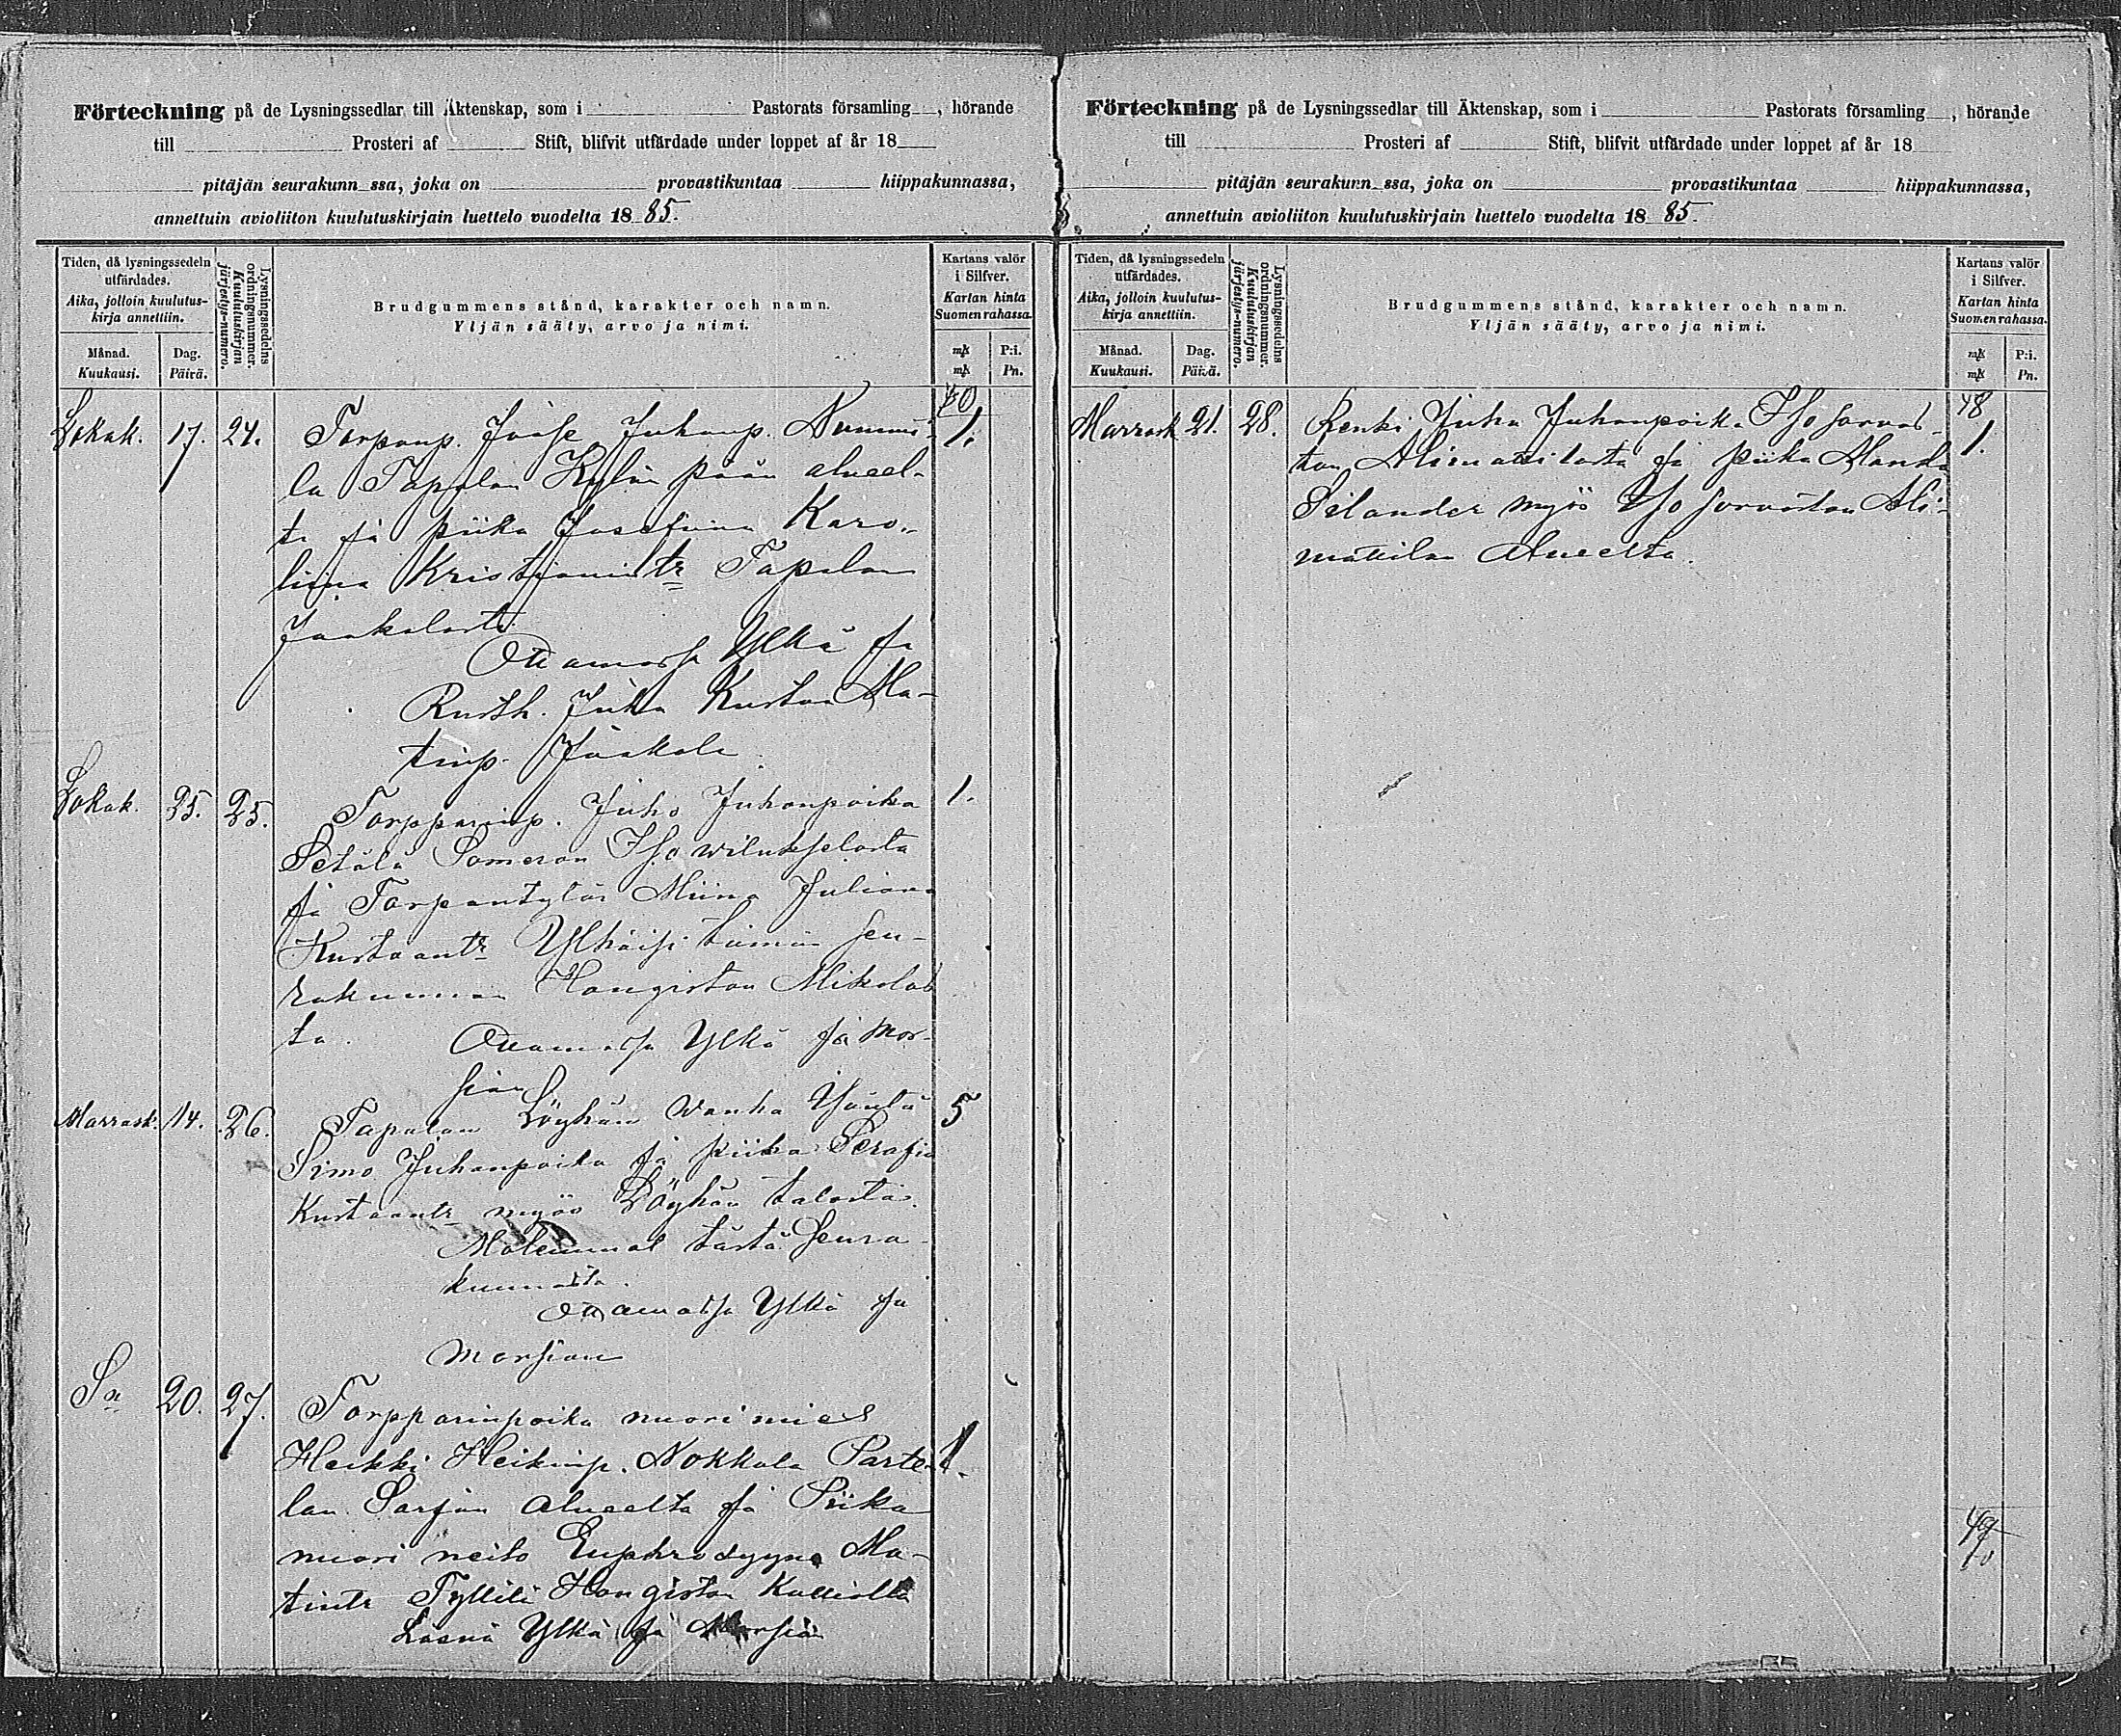 Förteckning på de Lysningssedlar till Äktenskap, som i Pastorats församling , hörande
till Prosteri af Stift, blifvit utfärdade under loppet af år 18
pitäjän seurakunn ssa, joka on provastikuntaa hiippakunnassa,
annettuin avioliiton kuulutuskirjain luettelo vuodelta 18 85.
Tiden, då lysningssedeln
utfärdades.
Aika, jolloin kuulutus-
kirja annettiin.
Månad.
Kuukausi.
Dag.
Päivä.
Lysningssedelns
ordningsnummer.
Kuulutuskirjan
järjestys-numero.
Brudgummens stånd, karakter och namn.
Yljän sääty, arvo ja nimi.
Kartans valör
i Silfver.
Kartan hinta
Suomen rahassa.
mk P:i.
mk Pn.
40
Lokak. 17. 24. Torpanp. Juhanp. Nummi- 1.
la Tapalan Kylän pään alueel-
ta ja piika Josefiina Karo-
liina Kristianintr Tapalan
Jaakolasta
Ottamassa Ylkä ja
Rusth. Juha Kustaa Ma-
tinp. Jaakola
Lokak. 25. 25. Torpparinp. Juho Juhanpoika 1.
Setälä Someron Iso wilukselasta
ja Torpantytär Miina Juliana
Kustaantr Ylhäisi tämän seu-
rakunnan Hongiston Mikolas
ta.
Ottamassa Ylkä ja mor-
sian
Marrask. 14. 26. Tapalan Löyhän wanha Isäntä 5
Simo Juhanpoika ja piika Serafia
Kustaantr myös Löyhän talosta.
Molemmat tästä seura-
kunnasta.
ottamassa Ylkä ja
morsian
Sn 20. 27. Torpparinpoika nuori mies
Heikki Heikinp. Nokkala Parte- 1.
lan Sarjan alueelta ja Piika
nuori neito Euphrosyyne Ma-
tintr Tyllilä Hongiston Kalliolta
Läsnä Ylkä ja Morsian
Förteckning på de Lysningssedlar till Äktenskap, som i Pastorats församling , hörande
till Prosteri af Stift, blifvit utfärdade under loppet af år 18
pitäjän seurakunn ssa, joka on provastikuntaa hiippakunnassa,
annettuin avioliiton kuulutuskirjain luettelo vuodelta 18 85.
Tiden, då lysningssedeln
utfärdades.
Aika, jolloin kuulutus-
kirja annettiin.
Månad.
Kuukausi.
Dag.
Päivä.
Lysningssedelns
ordningsnummer.
Kuulutuskirjan
järjestys-numero.
Brudgummens stånd, karakter och namn.
Yljän sääty, arvo ja nimi.
Kartans valör
i Silfver.
Kartan hinta
Suomen rahassa.
mk P:i.
mk Pn.
48
Marrask 21. 28. Renki Juha Juhanpoika Iso sorvas- 1.
ton Alimattilasta ja piika Manda
Silander myös Iso sorvaston Ali-
mattilan alueelta.
49